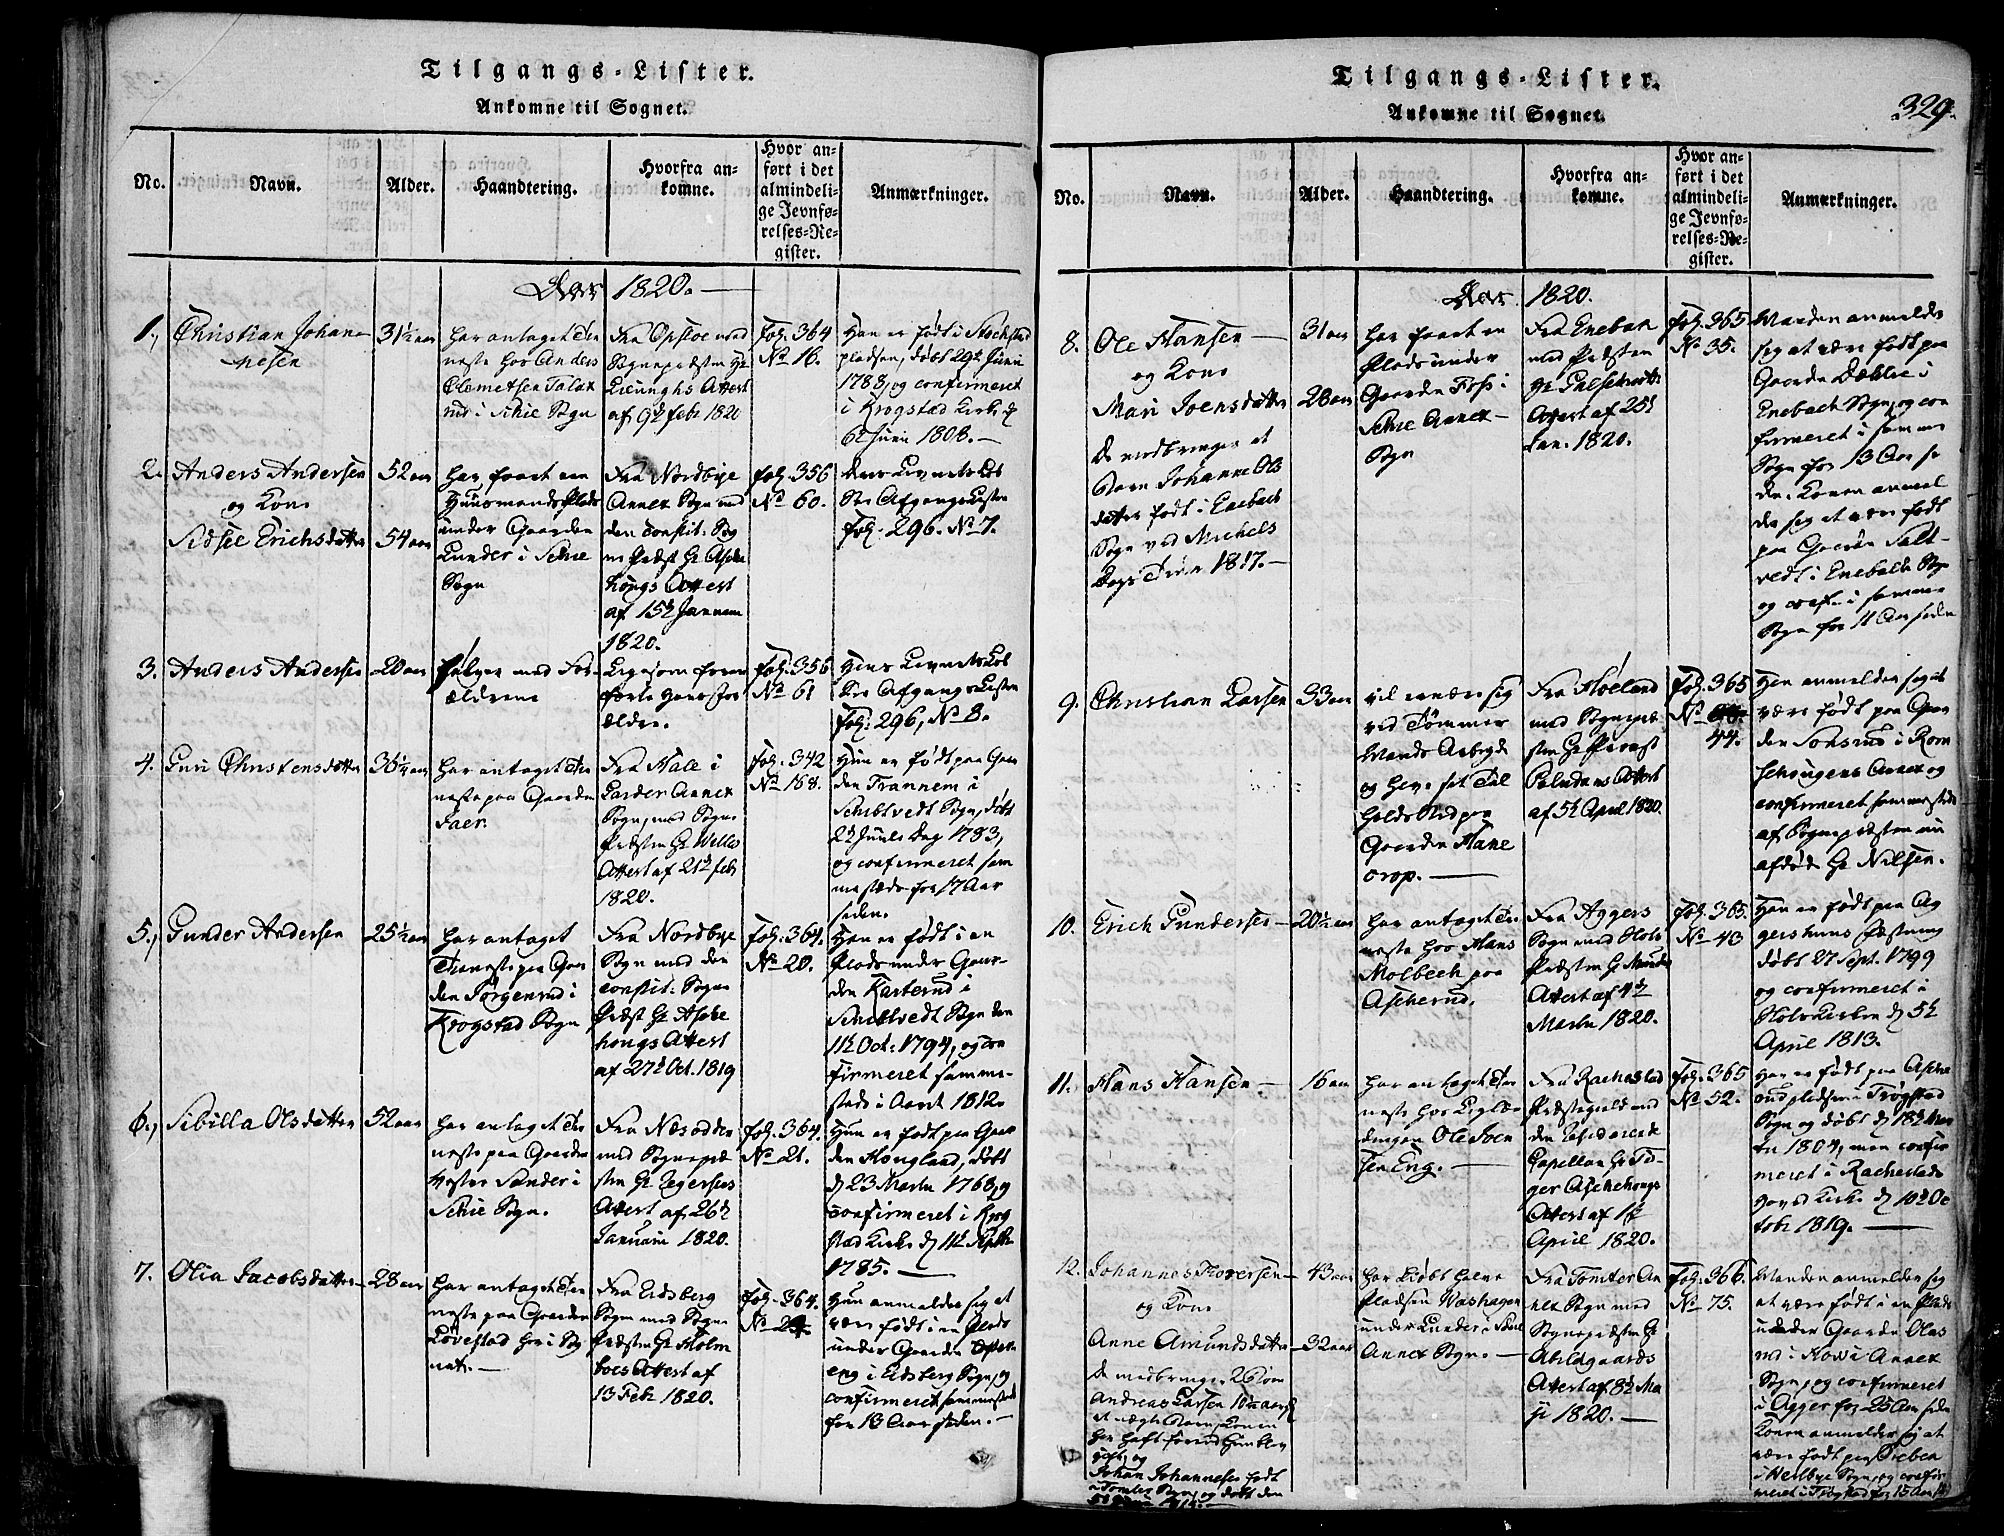 Tilgangs-Lister.
Ankomne til Sognet.
No.
Navn.
Alder.
Haandtering.
Hvorfra an-
komne.
Hvor an-
ført i det
almindeli-
ge Jevnfø-
relses-Re-
gister.
Anmærkninger.
Aar 1820.
1.,
Christian Johan-
nesen
31½ aar
har antaget Tie
neste hos Anders
Clemetsen
i Schie Sogn
Fra Opsloe med
Sognepræsten Hr
Attest
af 9de febr 1820
Foj. 364
No 16.
Han er født i
pladsen, døbt 29de Junii
1788, og confirmeret
i Krogstad Kirke d
6te Junii 1808.
2.
Anders Andersen
og Kone
Sidsee Erichsdatter
52 aar
54 aar
har faaet en
Huusmands Plads
under Gaarden
Lunder i Schie
Sogn
Fra Nordbye
Annex Sogn med
den constit: Sog
ne Præst Hr Asche
hougs Attest
af 15de Januarii
1820.
Foj. 356
No 60.
Deres Levnets Løb
See Afgangs Listen
Foj: 296. No 7.
3.
Anders Andersen
20 aar
følger med For-
ældrene
Ligesom foran
førte hans For
ældre.
Foj. 356
No 61
Hans Levnets Løb
See Afgangs Listen
Foj: 296, No 8.
4.
Guri Christensdatter
36¼ aar
har antaget Tie
neste paa Gaarden
Faer.
Fra Hale i
Garder Annex
Sogn, med Sogne
Præsten Hr Welles
Attest af 21de feb
1820.
Foj. 342
No 168.
Hun er født paa Gaar
den Trannem i
Schibtvedt Sogn, døbt
2den Juule Dag 1783,
og confirmeret sam
mesteds for 17 Aar
siden.
5.,
Gunder Andersen
25½ aar
har antaget
Tieneste paa Gaar
den Jørgenrud i
Krogstad Sogn
Fra Nordbye
Sogn med den
constit: Sogne
Præst Hr Asche
hougs Attest
af 27de Oct. 1819
Foj. 364.
No 20.
Han er født i en
Plads under Gaar-
den Karterud i
Schibtvedt Sogn den
11te Oct: 1794, og con
firmeret samme-
steds i Aaret 1812.
6.,
Sibilla Olsdatter
52 aar
har antaget Tie
neste paa Gaarden
Vester Sander i
Schie Sogn.
Fra Næsodden
med Sognepræ
sten Hr Zegersens
Attest af 26de
Januarii 1820.
Foj. 364.
No 21.
Hun er født paa Gaar
den Hougland, døbt
d 23 Martii 1768, og
confirmeret i Krog
stad Kirke d 11te Septbr
1785.
7.
Olia Jacobsdatter
28 aar
har antaget Tie
neste paa Gaarden
Løvestad her i Sog
net.
Fra Eidsberg
Sogn med Sogne
Præsten Hr Holm
boes Attest af
13 Febr 1820.
Foj. 364.
No 24.
Hun anmelder sig at
være født i en Plads
under Gaarden
eng i Eidsberg Sogn, og
confirmeret sammesteds
for 13 Aar siden.
Tilgangs-Lister.
Ankomne til Sognet.
329.
No.
Navn.
Alder.
Haandtering.
Hvorfra an-
komne.
Hvor an-
ført i det
almindeli-
ge Jevnfø-
relses-Re-
gister.
Anmærkninger.
Aar 1820.
8.
Ole Hansen
og Kone
Mari Joensdatter
De medbringer et
Barn Johanne Ols
datter født i Enebach
Sogn ved Michels
Dags Tider 1817.
31 aar
28 aar
har faaet en
Plads under
Gaarden Foss i
Schie Annex
Sogn
Fra Enebak
med Præsten
Hr
Attest af 25de
Jan. 1820.
Foj. 365
No 35.
Manden anmelder
sig at være født paa
Gaarden Dæhlie i
Enebach Sogn, og con
firmeret i samme
Sogn for 13 Aar si
den. Konen anmel
der sig at være født
paa Gaarden
i Enebach Sogn
og conf. i samme
Sogn for 11 Aar siden
9.
Christian Larsen
33 aar
vil ernære sig
ved Tømmer
Mands Arbeyde
og have sit Til
holds Sted paa
Gaarden Hane
orop.
Fra Høeland
med Sognepræ
sten Hr Provst
Paludans Attest
af 5te April 1820.
Foj. 365
No
44.
Han anmelder sig at
være født paa Gaar
den Sonsrud i Rom
schougens Annex og
confirmeret sammesteds
af Sognepræsten nu
afdøde Hr Nilsen.
10.
Erich Gundersen
20½ aar
har antaget Tie
neste hos Hans
Molbech paa
Ascherud.
Fra Aggers
Sogn med Hols
Præsten Hr Munds
Attest af 4de
Martii 1820.
Foj. 365.
No 43
Han er født paa Ag
gershuus fæstning
døbt 27 Sept. 1799
og confirmeret i
Hols Kirken d 5te
April 1813.
11.
Hans Hansen
16 aar
har antaget Tie
neste hos
Ole Joen
sen Eng.
Fra Rachestad
Præstegield med
den residerende
Capellan Hr To-
ger Aschehougs
Attest af 1ste
April 1820.
Foj. 365
No 52.
Han er født paa Asche
rudpladsen i Trøgstad
Sogn og døbt d 18de Mar
tii 1804, men confir
meret i Rachestads
Hoved Kirke d 10de Oc
tobr 1819.
12.
Johannes Torersen
og Kone
Anne Amundsdatter
De medbringer 2 Børn
Andreas Larsen 10½ aar
et uægte Barn, Konen
har haft førend hun blev
gift, og
Johan Johannesen født
i Tomter Sogn, og døbt den
43 aar
32 aar
har kiøbt halve
Pladsen Washagen
under Lunder i Schie
Annex Sogn.
Fra Tomter An
nex Sogn med
Sognepræsten Hr
Abildgaards
Attest af 8de Ma
ji 1820.
Foj. 366.
No 75.
Manden anmelder sig
at være født i en Plads
under Gaarden Olas
rud i Annex
Sogn, og confirmeret
i Agger for 25 Aar siden
Konen anmelder sig at
være født paa
i Sogn, og confir
meret i Trøgstad for 15 Aar